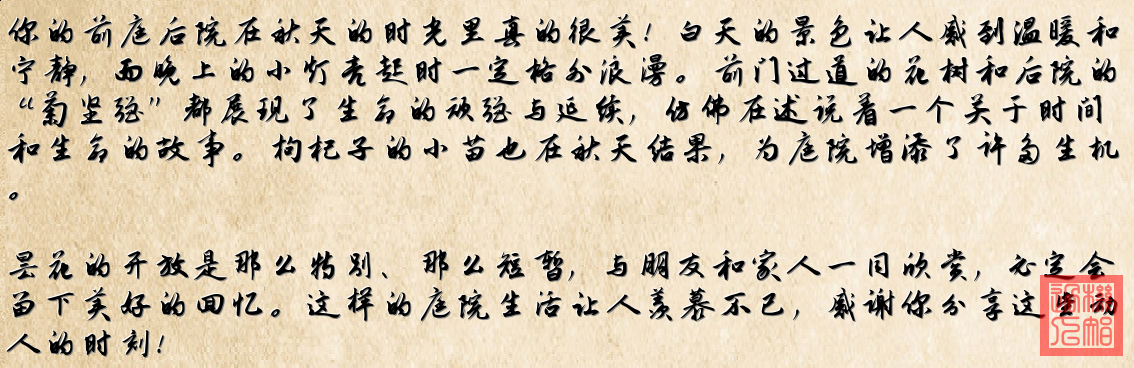 你的前庭后院在秋天的时光里真的很美！白天的景色让人感到温暖和
宁静，而晚上的小灯亮起时一定格外浪漫。前门过道的花树和后院的
“菊坚强”都展现了生命的顽强与延续，仿佛在述说着一个关于时间
和生命的故事。枸杞子的小苗也在秋天结果，为庭院增添了许多生机
。
昙花的开放是那么特别、那么短暂，与朋友和家人一同欣赏，必定会
留下美好的回忆。这样的庭院生活让人羡慕不已，感谢你分享这些动
人的时刻！